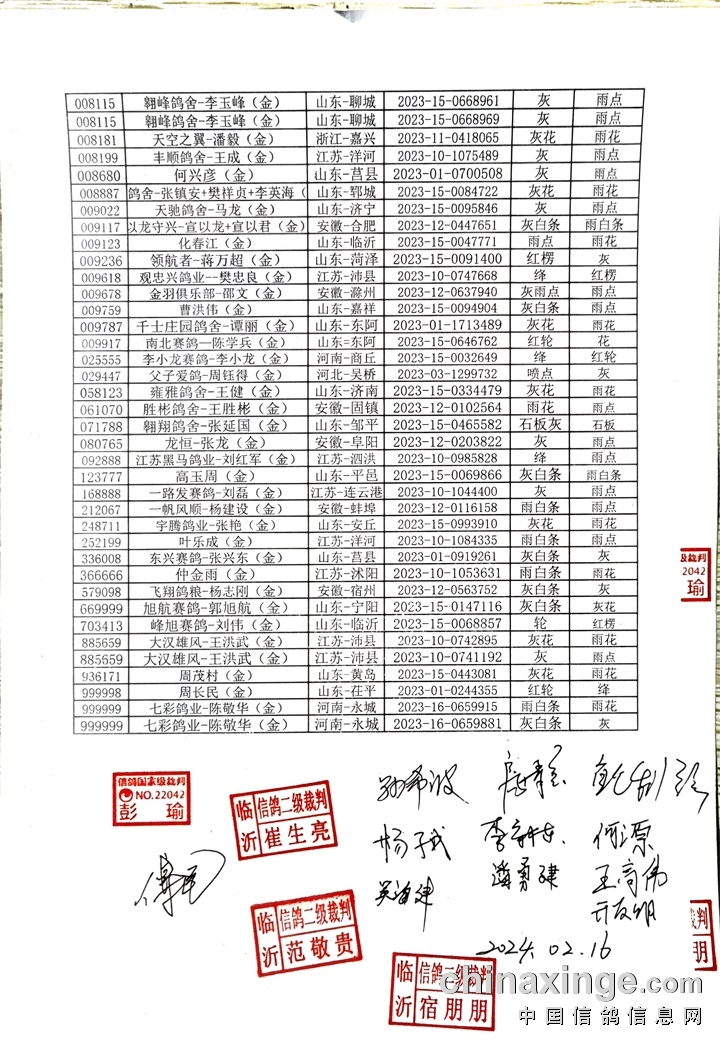 008115 翱峰鸽舍-李玉峰（金） 山东-聊城 2023-15-0668961 灰 雨点
008115 翱峰鸽舍-李玉峰（金） 山东-聊城 2023-15-0668969 灰 雨点
008181 天空之翼-潘毅（金） 浙江-嘉兴 2023-11-0418065 灰花 雨花
008199 丰顺鸽舍-王成（金） 江苏-洋河 2023-10-1075489 灰 雨点
008680 何兴彦（金） 山东-莒县 2023-01-0700508 灰 雨点
008887 鸽舍-张镇安+樊祥贞+李英海（ 山东-郓城 2023-15-0084722 灰花 雨花
009022 天驰鸽舍-马龙（金） 山东-济宁 2023-15-0095846 灰 雨点
009117 以龙守兴-宣以龙+宣以君（金） 安徽-合肥 2023-12-0447651 灰白条 雨白条
009123 化春江（金） 山东-临沂 2023-15-0047771 雨点 雨花
009236 领航者-蒋万超（金） 山东-菏泽 2023-15-0091400 红楞 灰
009618 观忠兴鸽业--樊忠良（金） 江苏-沛县 2023-10-0747668 绛 红楞
009678 金羽俱乐部-邵文（金） 安徽-滁州 2023-12-0637940 灰雨点 雨点
009759 曹洪伟（金） 山东-嘉祥 2023-15-0094904 灰白条 雨点
009787 千士庄园鸽舍-谭丽（金） 山东-东阿 2023-01-1713489 灰花 雨花
009917 南北赛鸽—陈学兵（金） 山东=东阿 2023-15-0646762 红轮 花
025555 李小龙赛鸽-李小龙（金） 河南-商丘 2023-15-0032649 绛 红轮
029447 父子爱鸽-周钰得（金） 河北-吴桥 2023-03-1299732 喷点 灰
058123 雍雅鸽舍-王健（金） 山东-济南 2023-15-0334479 灰花 雨花
061070 胜彬鸽舍-王胜彬（金） 安徽-固镇 2023-12-0102564 雨花 雨点
071788 翱翔鸽舍-张延国（金） 山东-邹平 2023-15-0465582 石板灰 石板
080765 龙恒-张龙（金） 安徽-阜阳 2023-12-0203822 灰 雨点
092888 江苏黑马鸽业-刘红军（金） 江苏-泗洪 2023-10-0985828 绛 雨点
123777 高玉周（金） 山东-平邑 2023-15-0069866 灰白条 雨白条
168888 一路发赛鸽-刘磊（金） 江苏-连云港 2023-10-1044400 灰 雨点
212067 一帆风顺-杨建设（金） 安徽-蚌埠 2023-12-0116158 雨白条 雨点
248711 宇腾鸽业-张艳（金） 山东-安丘 2023-15-0993910 灰花 雨花
252199 叶乐成（金） 江苏-洋河 2023-10-1084335 雨白条 雨点
336008 东兴赛鸽-张兴东（金） 山东-莒县 2023-01-0919261 灰白条 灰
366666 仲金雨（金） 江苏-沭阳 2023-10-1053631 雨白条 雨花
579098 飞翔鸽粮-杨志刚（金） 安徽-宿州 2023-12-0563752 灰白条 灰
669999 旭航赛鸽-郭旭航（金） 山东-宁阳 2023-15-0147116 灰白条 灰花
703413 峰旭赛鸽-刘伟（金） 山东-临沂 2023-15-0068857 轮 红楞
885659 大汉雄风-王洪武（金） 江苏-沛县 2023-10-0742895 灰花 雨花
885659 大汉雄风-王洪武（金） 江苏-沛县 2023-10-0741192 灰 雨点
936171 周茂村（金） 山东-黄岛 2023-15-0443081 灰花 雨花
999998 周长民（金） 山东-茌平 2023-01-0244355 红轮 绛
999999 七彩鸽业-陈敬华（金） 河南-永城 2023-16-0659810 雨白条 雨花
999999 七彩鸽业-陈敬华（金） 河南-永城 2023-16-0659881 灰白条 灰
级裁判
2042
瑜
信鸽国家级裁判
NO.22042
彭瑜
临沂 信鸽二级裁判 崔生亮
孙希波
杨子武 何源
王高伟
临沂 信鸽二级裁判 范敬贵
2024.02.16
裁判
朋
临沂 信鸽二级裁判 宿朋朋
chinaxinge.com
中国信鸽信息网